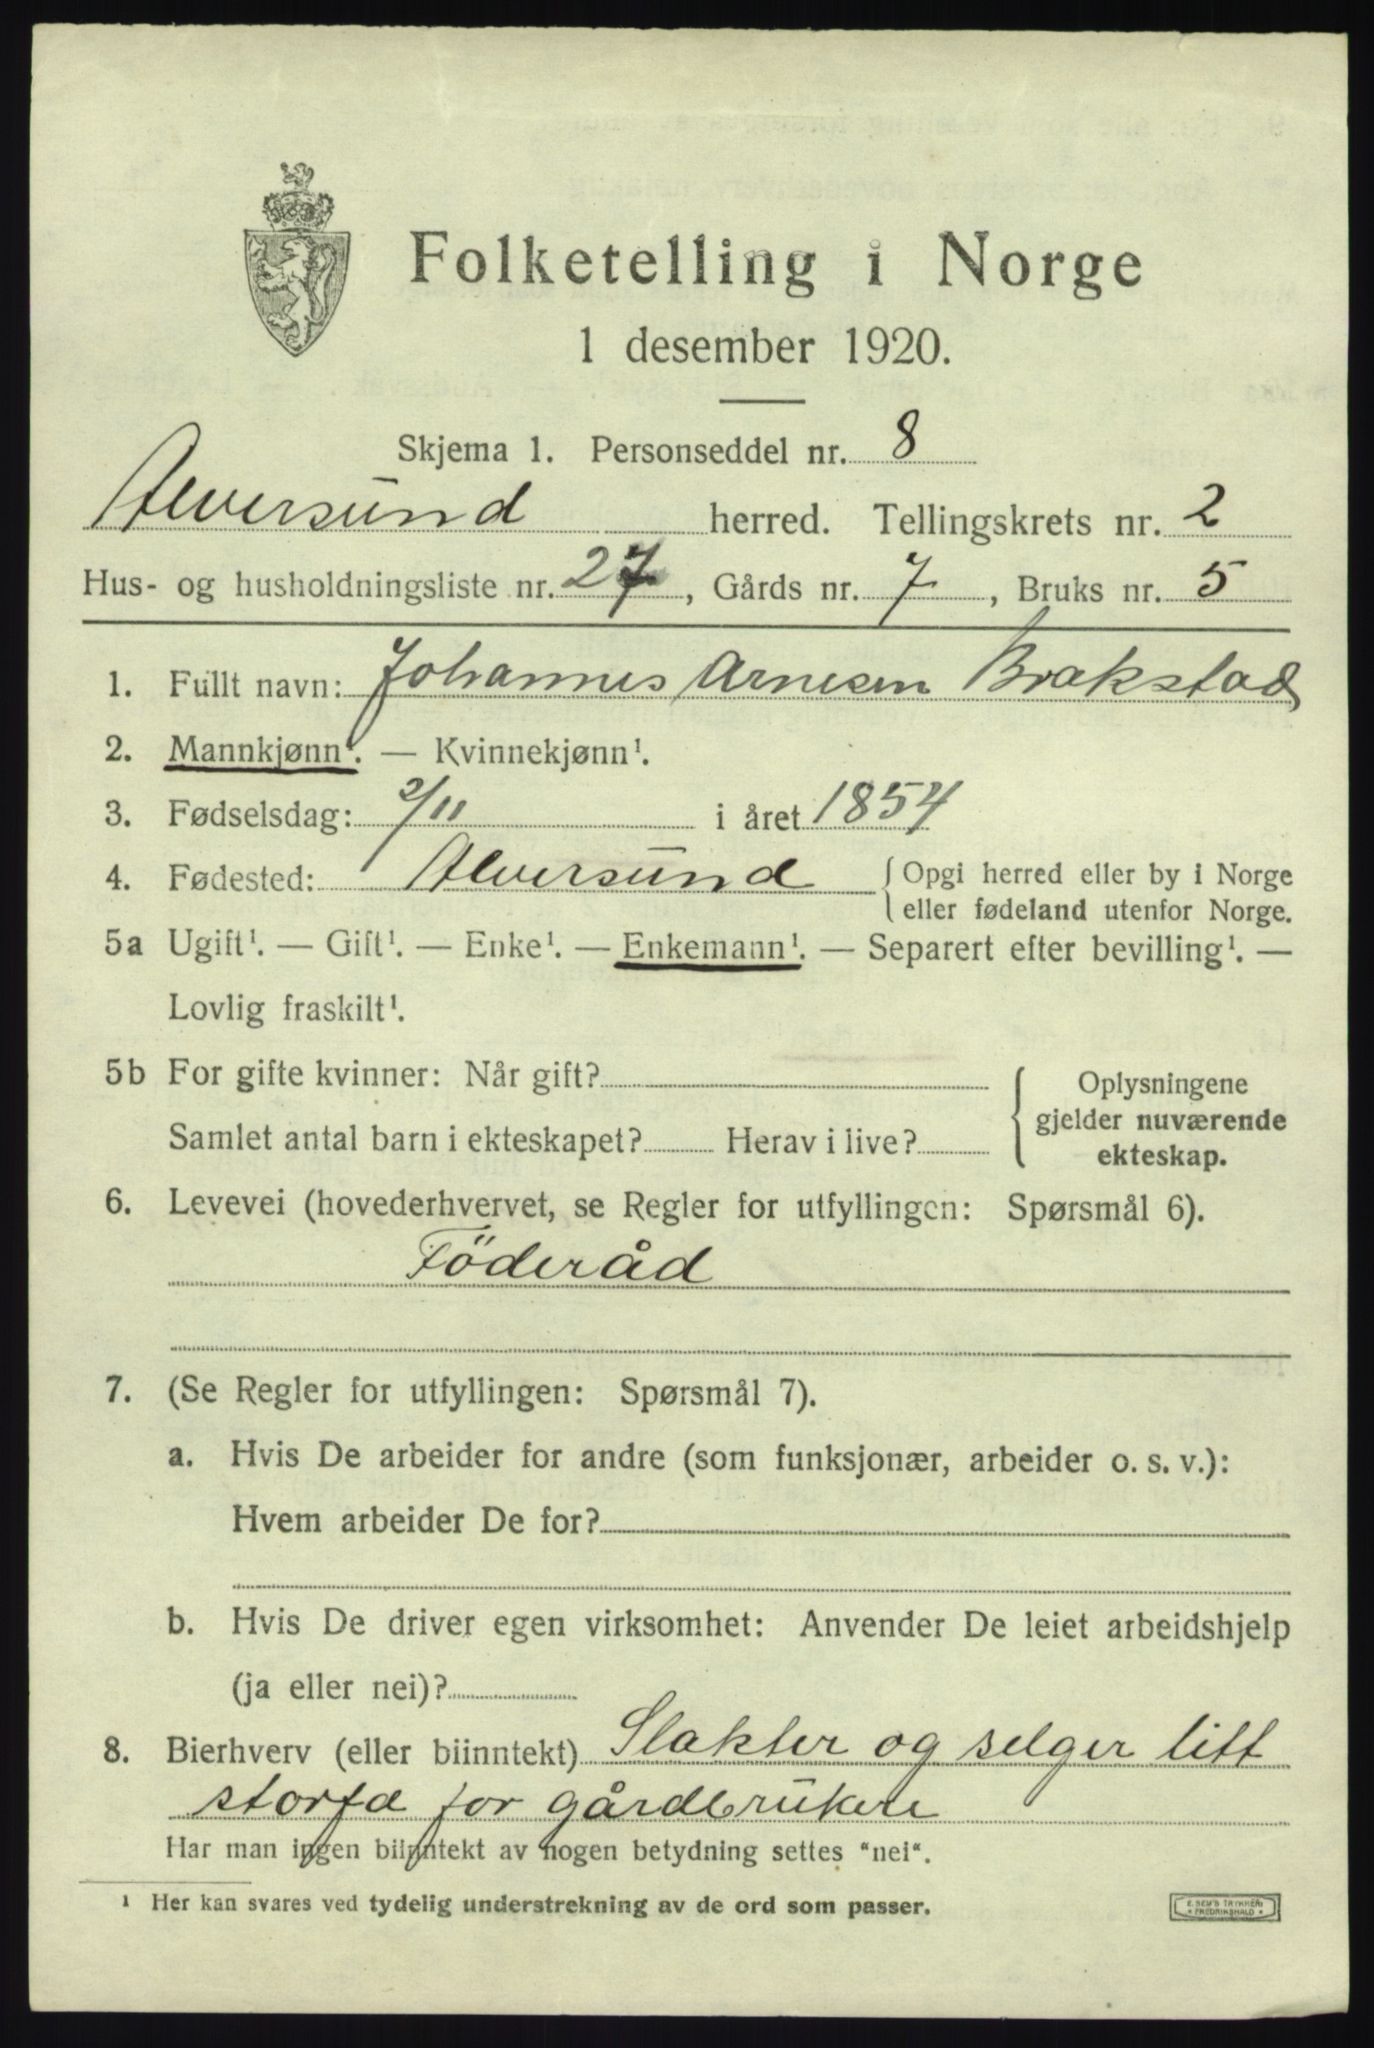 Folketelling i Norge
1 desember 1920.
Skjema 1. Personseddel nr. 8
Alversund herred. Tellingskrets nr. 2
Hus- og husholdningsliste nr. 27, Gårds nr. 7, Bruks nr. 5
1. Fullt navn: Johannes Arnesen Brakstad
2. Mannkjønn¹. — Kvinnekjønn¹.
3. Fødselsdag: 2/11 i året 1854
4. Fødested: Alversund { Opgi herred eller by i Norge
eller fødeland utenfor Norge.
5a Ugift¹. — Gift¹. — Enke¹. — Enkemann¹. — Separert efter bevilling¹. —
Lovlig fraskilt¹.
5b For gifte kvinner: Når gift?
Samlet antal barn i ekteskapet? Herav i live?
{ Oplysningene
gjelder nuværende
ekteskap.
6. Levevei (hovederhvervet, se Regler for utfyllingen: Spørsmål 6).
Föderåd
7. (Se Regler for utfyllingen: Spørsmål 7).
a. Hvis De arbeider for andre (som funksjonær, arbeider o. s. v.):
Hvem arbeider De for?
b. Hvis De driver egen virksomhet: Anvender De leiet arbeidshjelp
(ja eller nei)?
8. Bierhverv (eller biinntekt) Slakter og selger litt
storfæ for gårdbrukere
Har man ingen biinntekt av nogen betydning settes "nei".
¹ Her kan svares ved tydelig understrekning av de ord som passer.
E. SEM'S TRYKKERI
* FREDRIKSHALD *